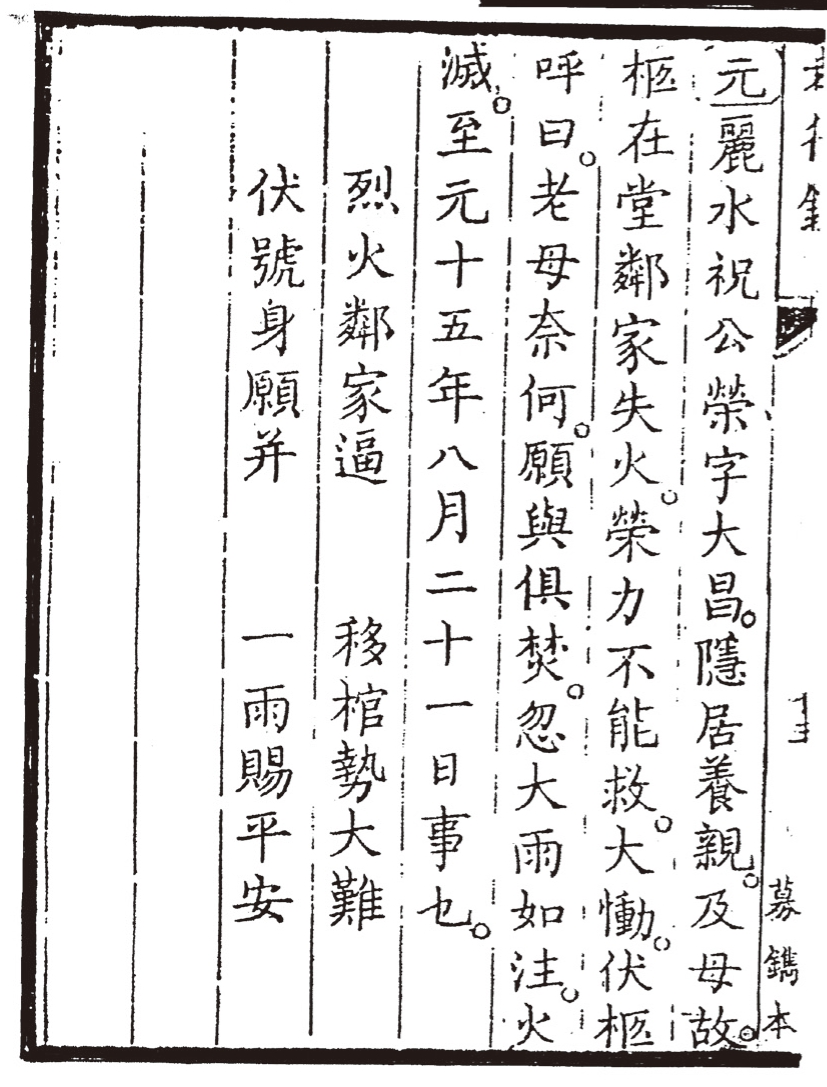 十三
募鐫本
元麗水祝公榮字大昌。隱居養親。及母故。
柩在堂鄰家失火。榮力不能救。大慟。伏柩
呼曰。老母奈何。願與俱焚。忽大雨如注。火
滅。至元十五年八月二十一日事也。
烈火鄰家逼　移棺勢大難
伏號身願并　一雨賜平安